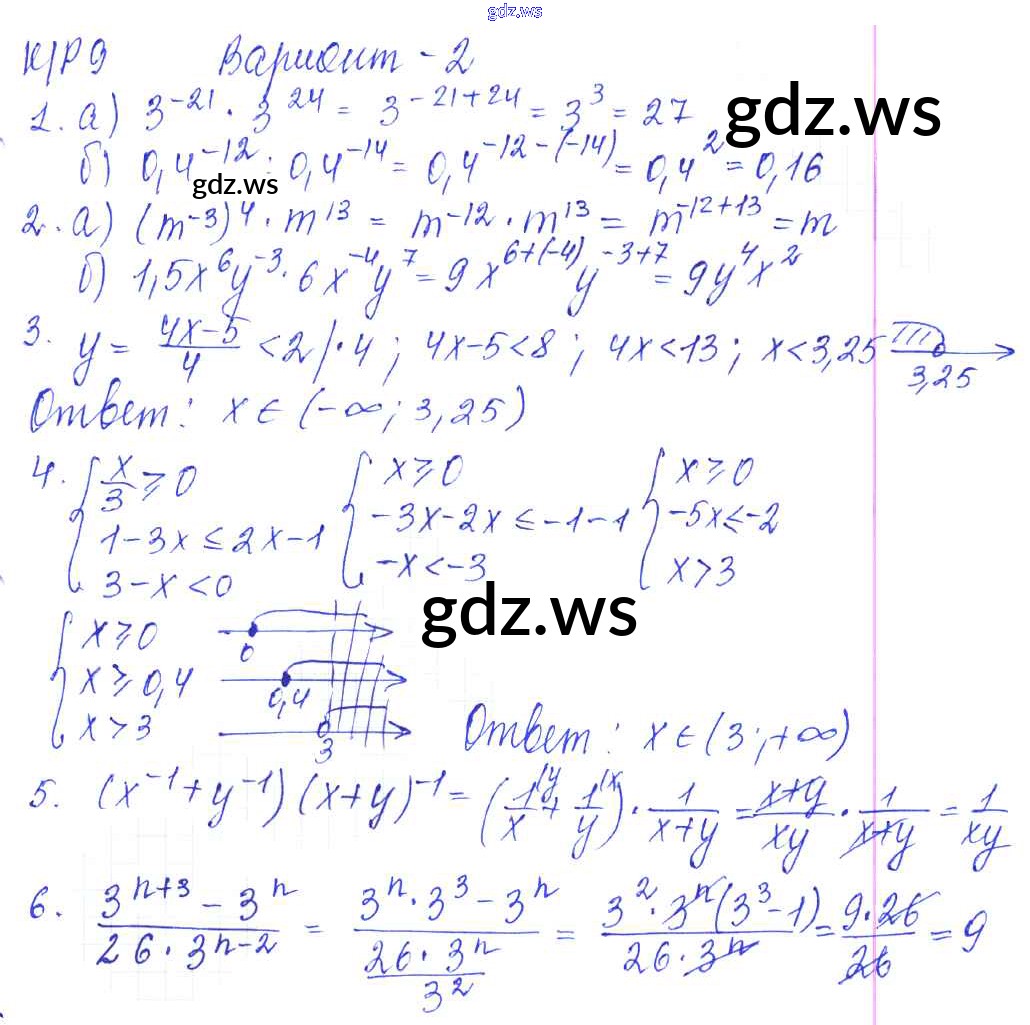 gdz.ws
К/Р 9 Вариант - 2
gdz.ws
1. а) 3^-21 · 3^24 = 3^-21+24 = 3^3 = 27
б) 0,4^-12 : 0,4^-14 = 0,4^-12-(-14) = 0,4^2 = 0,16
gdz.ws
2. а) (m^-3)^4 · m^13 = m^-12 · m^13 = m^-12+13 = m
б) 1,5x^6y^-3 · 6x^-4y^7 = 9x^6+(-4)y^-3+7 = 9y^4x^2
3. y = (4x-5)/4 < 2 | · 4 ; 4x-5<8 ; 4x<13 ; x<3,25
3,25
Ответ: x ∈ (-∞; 3,25)
4. { x/3 ≥ 0 { x ≥ 0 { x ≥ 0
1-3x ≤ 2x-1 -3x-2x ≤ -1-1 -5x ≤ -2
3-x < 0 -x < -3 x > 3
gdz.ws
{ x ≥ 0 0
x ≥ 0,4 0,4
x > 3 3
Ответ: x ∈ (3; +∞)
5. (x^-1 + y^-1)(x+y)^-1 = (1/x^(y + 1/y^(x) · 1/(x+y) = (x+y)/(xy) · 1/(x+y) = 1/(xy)
6. (3^n+3 - 3^n)/(26 · 3^n-2) = (3^n · 3^3 - 3^n)/((26 · 3^n)/3^2) = (3^2 · 3^n(3^3-1))/(26 · 3^n) = (9 · 26)/26 = 9